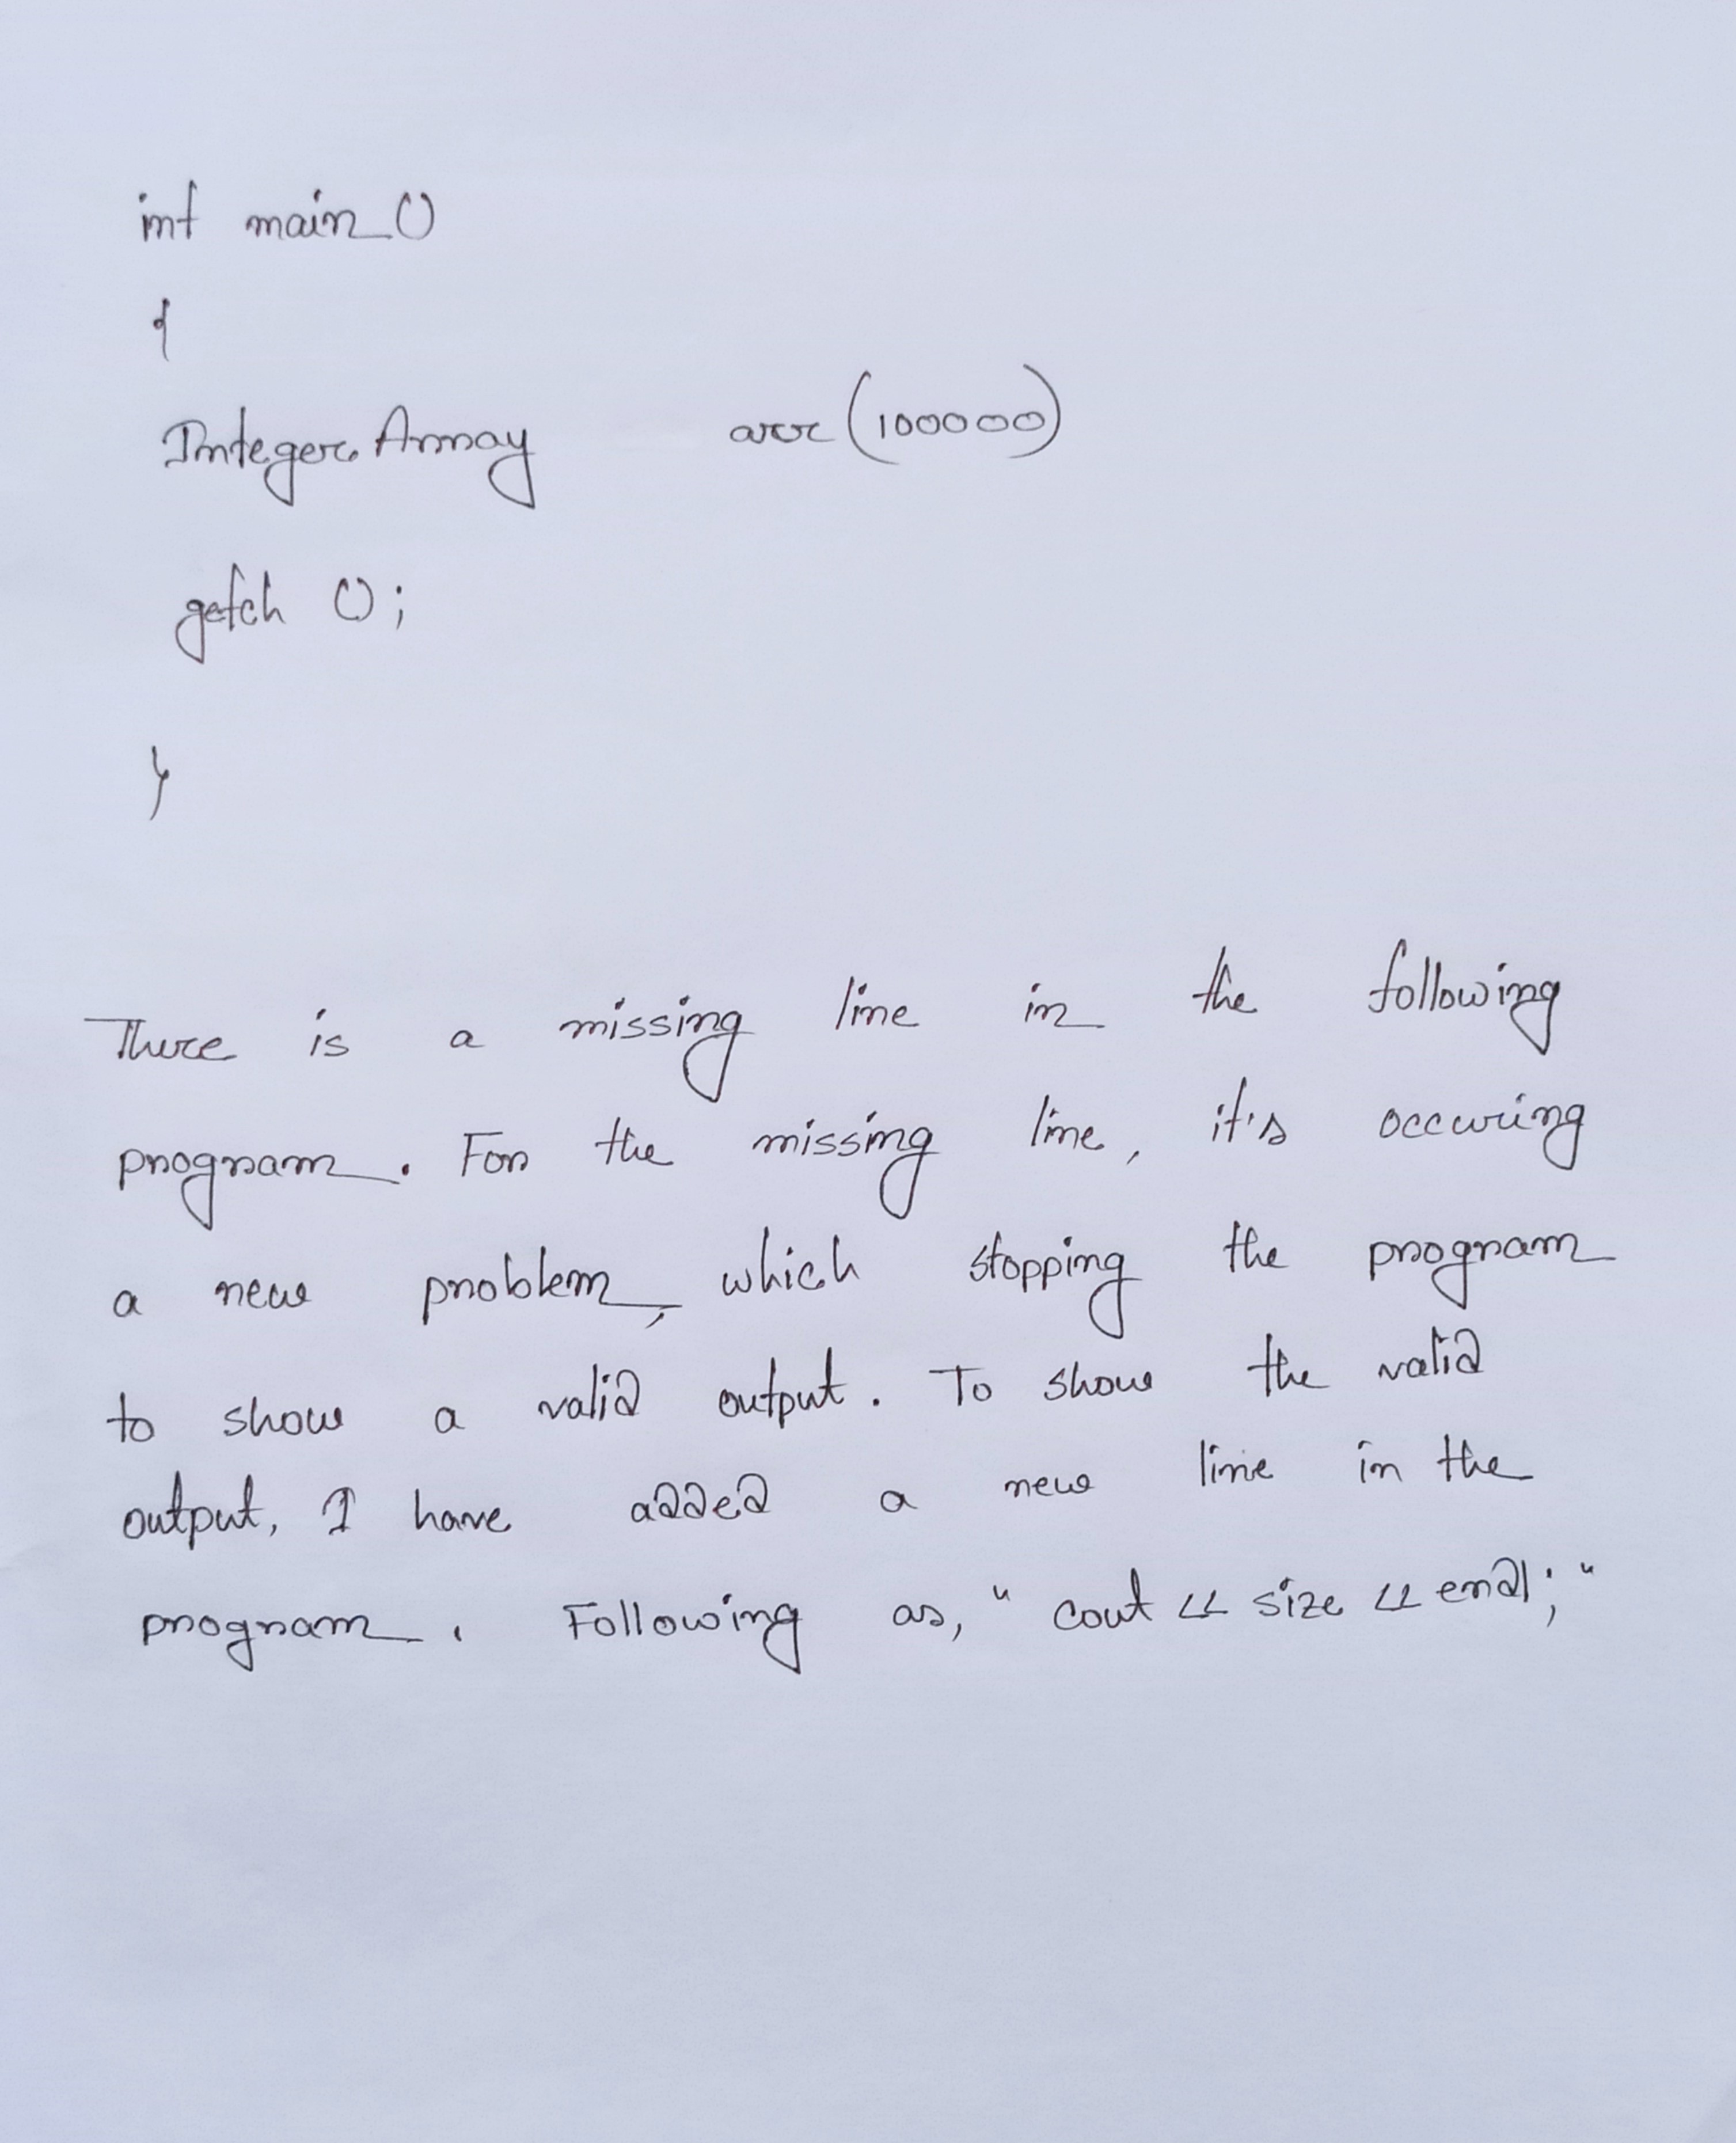 int main ()
{
Integer Array arr (100000)
getch ();
}
There is a missing line in the following
program. For the missing line, it's occuring
a new problem, which stopping the program
to show a valid output. To show the valid
output, I have added a new line in the
program. Following as, " cout << size << endl; "